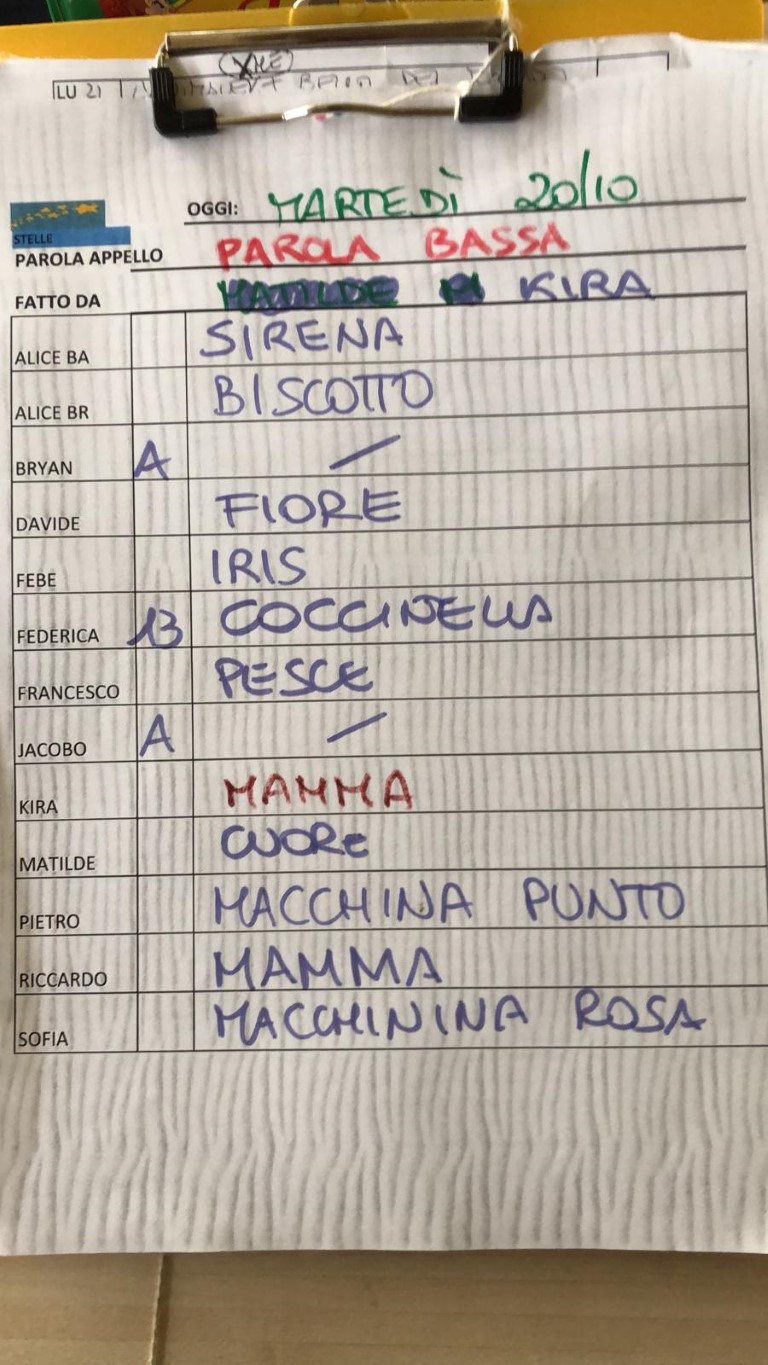 LU 21
OGGI: MARTEDÌ 20/10
STELLE
PAROLA APPELLO PAROLA BASSA
FATTO DA MATILDE KIRA
ALICE BA SIRENA
ALICE BR BISCOTTO
BRYAN A /
DAVIDE FIORE
FEBE IRIS
FEDERICA 13 COCCINELLA
FRANCESCO PESCE
JACOBO A /
KIRA MAMMA
MATILDE CUORE
PIETRO MACCHINA PUNTO
RICCARDO MAMMA
SOFIA MACCHININA ROSA